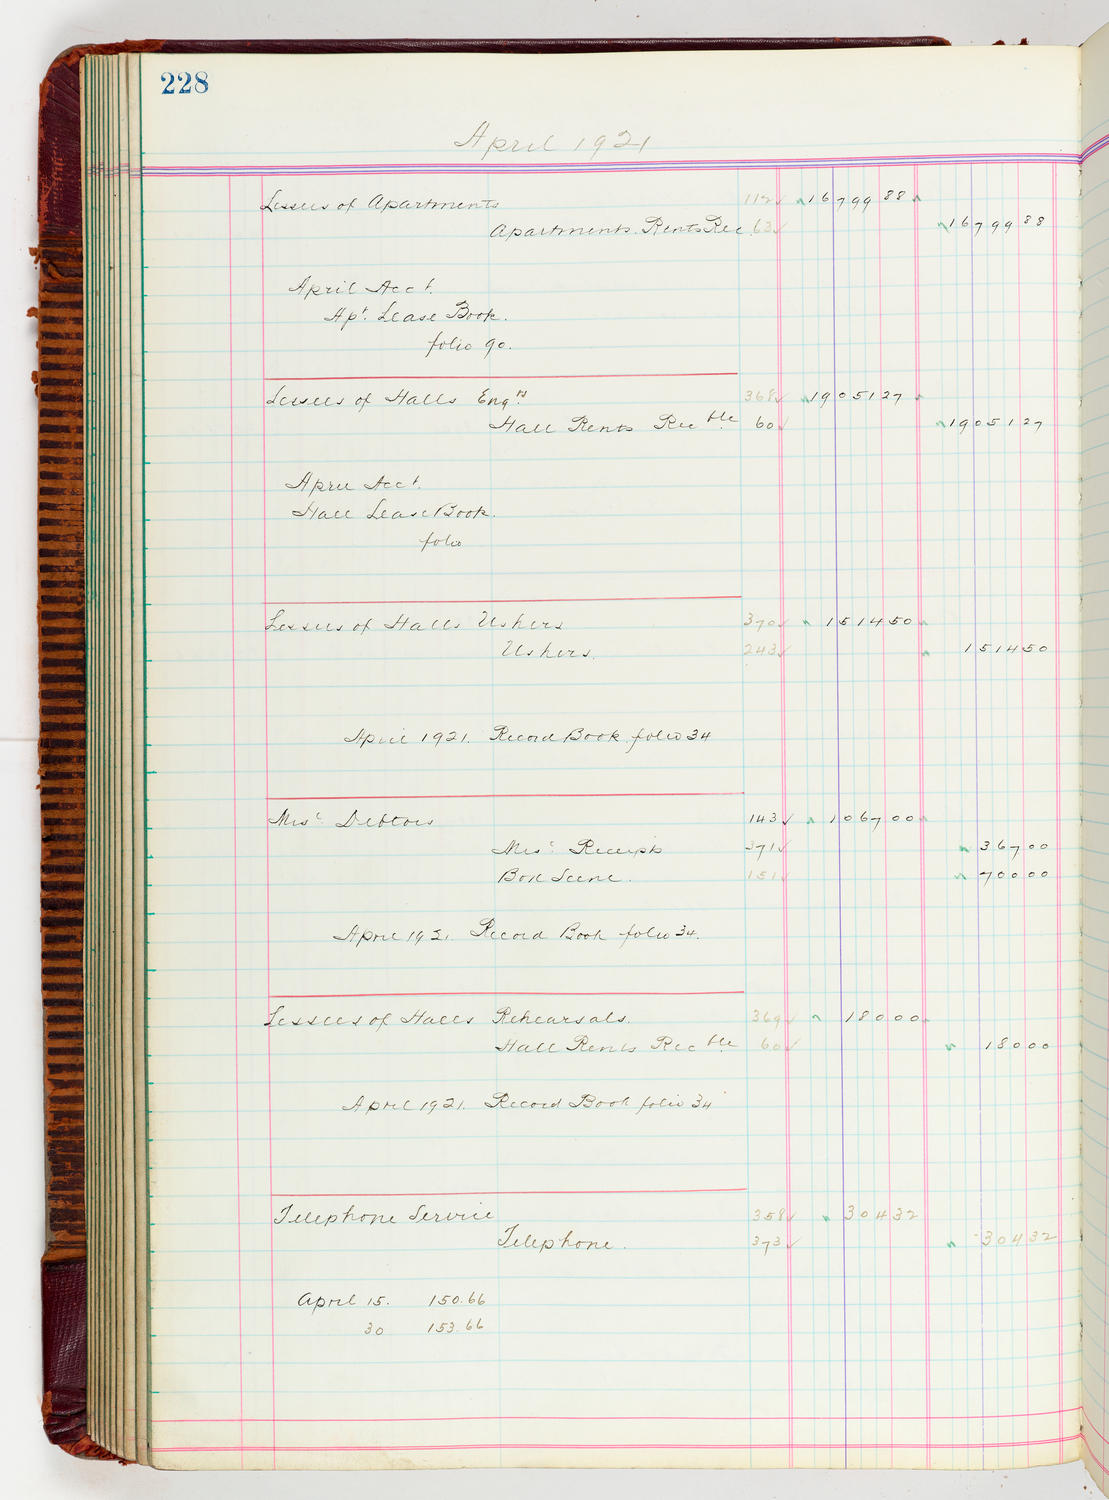 228
April 1921
Lessees of Apartments 112 ✓ 16799 88
Apartments Rents Rec. 63 ✓ 16799 88
April Acct.
Apt. Lease Book.
folio 90.
Lessees of Halls Engts 368 ✓ 1905127
Hall Rents Recble 60 ✓ 1905127
April Acct.
Hall Lease Book.
folio
Lessees of Halls Ushers 370 ✓ 151450
Ushers. 243 ✓ 151450
April 1921. Record Book folio 34
Misc Debtors 143 ✓ 106700
Misc Receipts 371 ✓ 36700
Box Scene. 151 ✓ 70000
April 1921. Record Book folio 34.
Lessees of Halls Rehearsals. 369 ✓ 18000
Hall Rents Recble 60 ✓ 18000
April 1921. Record Book folio 34
Telephone Service 358 ✓ 30432
Telephone. 373 ✓ 30432
April 15. 150.66
30 153.66